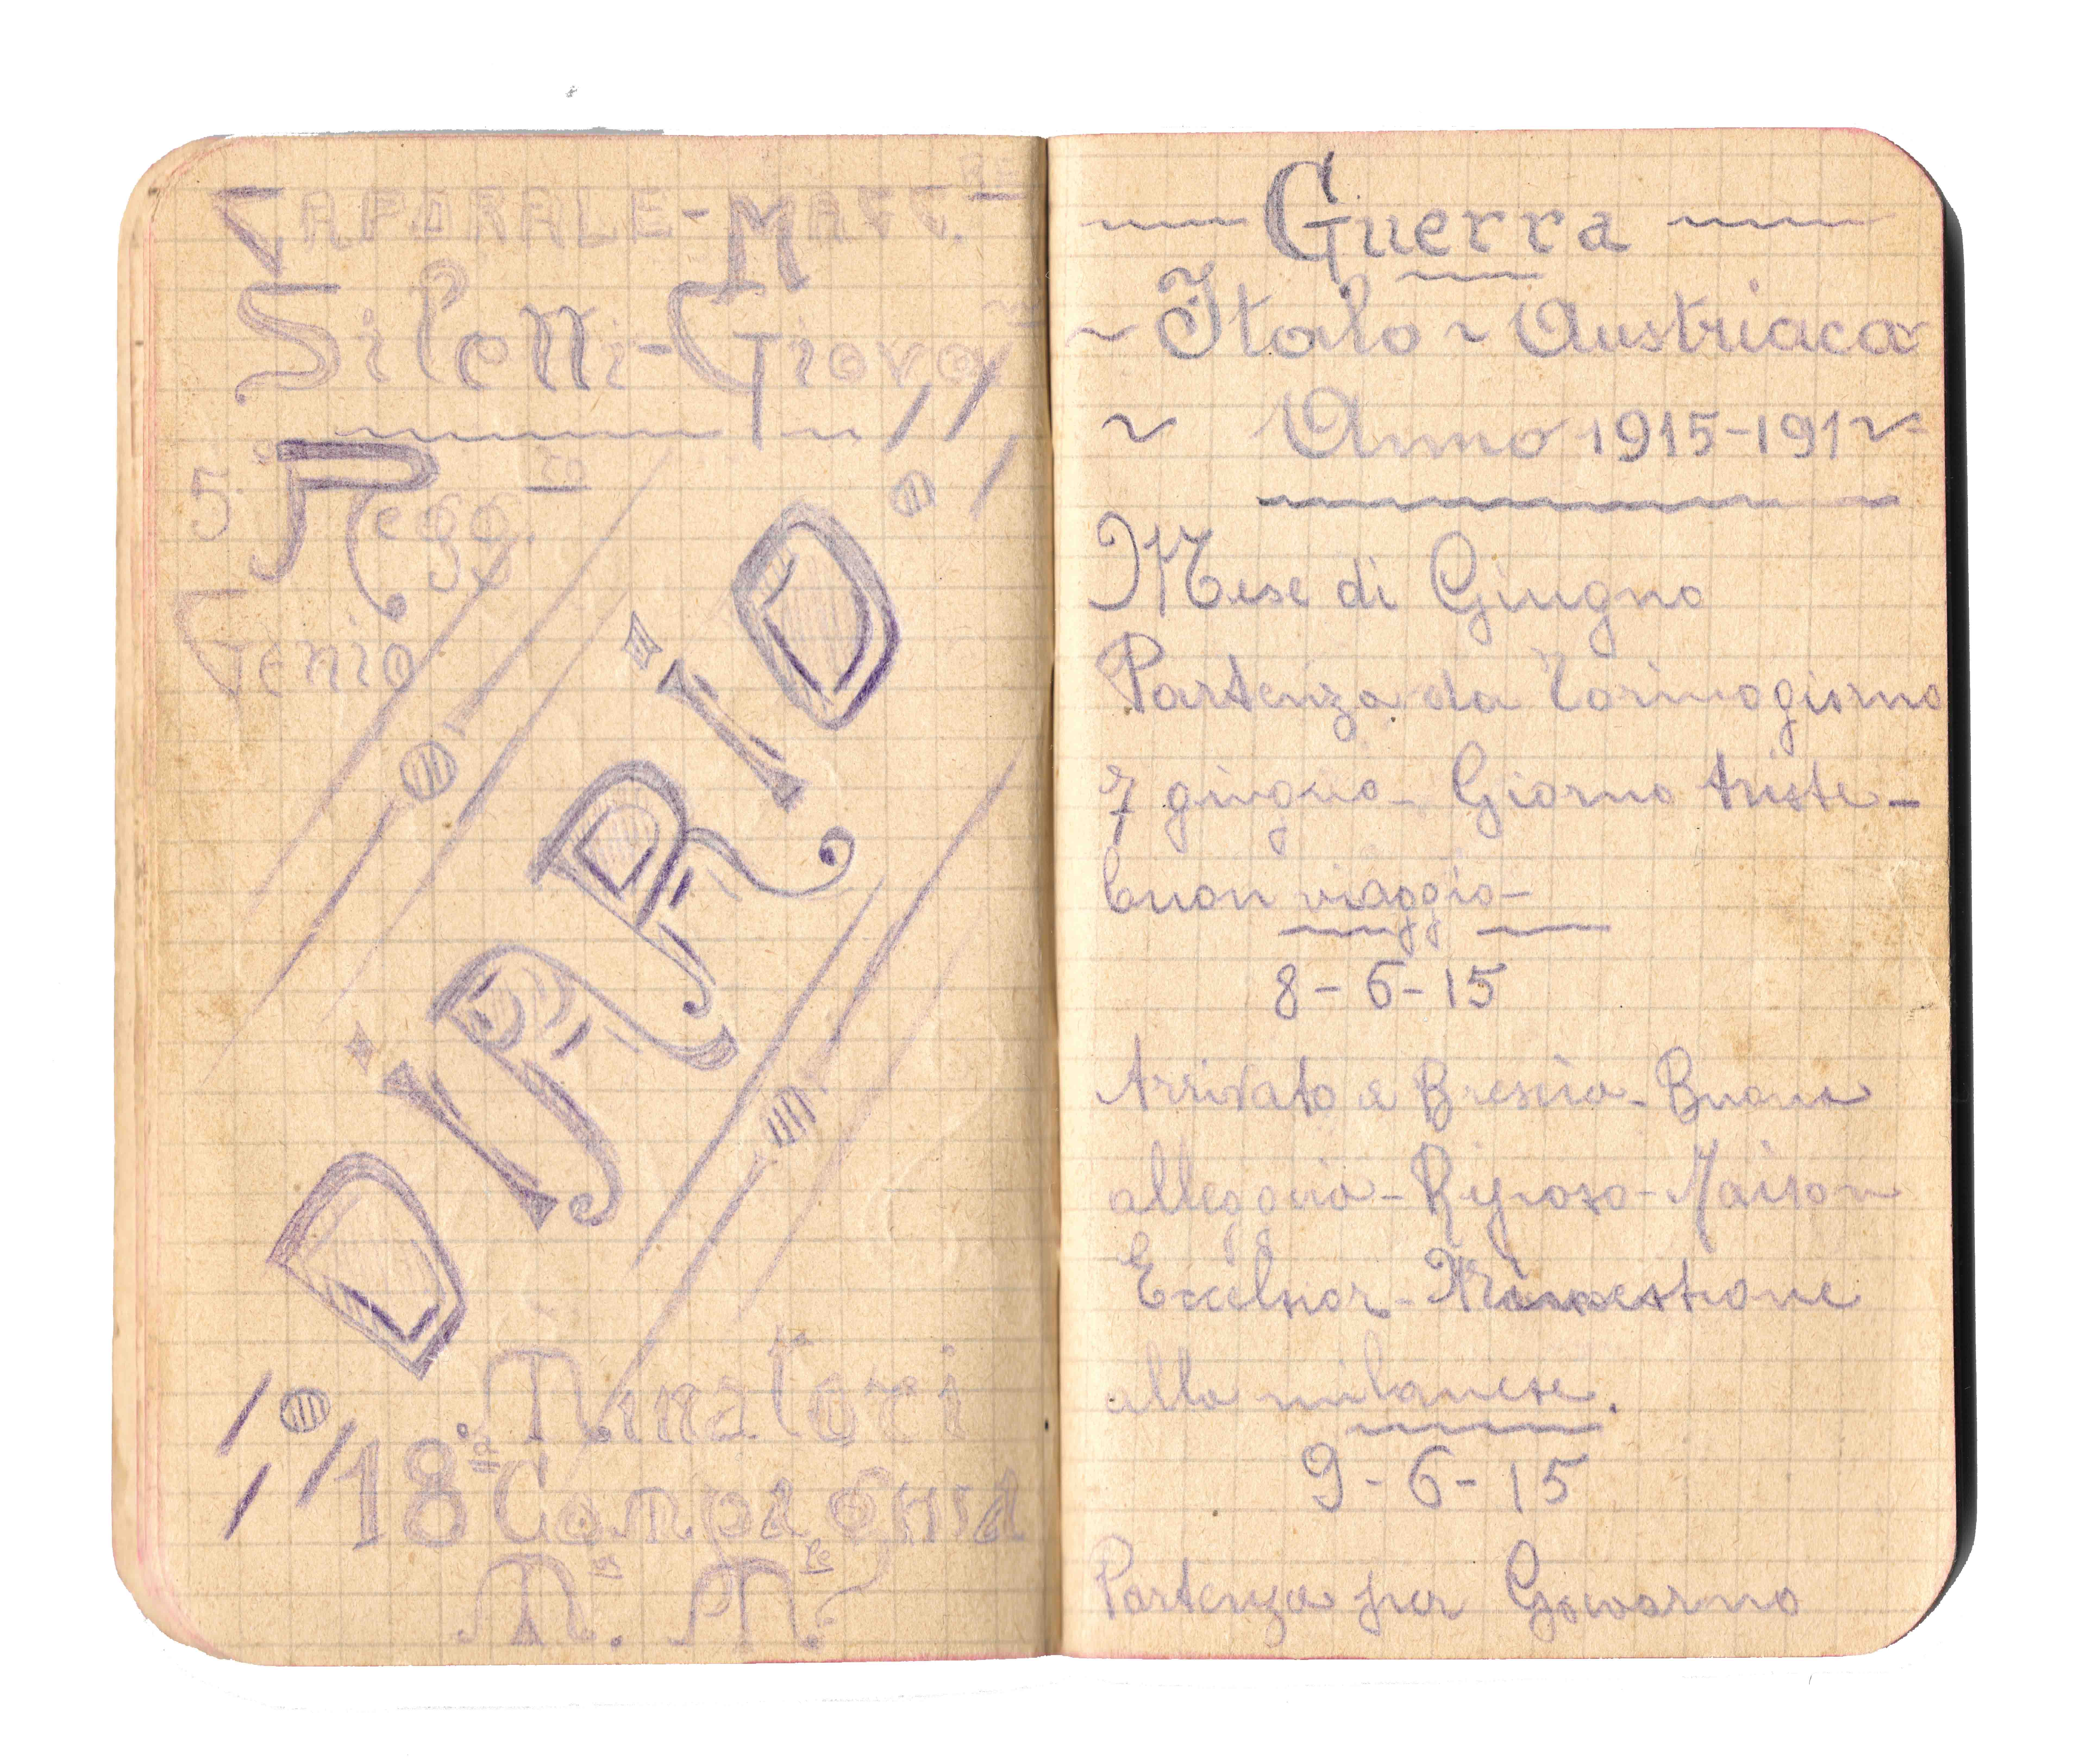 CAPORALE-MAGG.RE
Siletti-Giova
5.° Regg.to
Genio
DIARIO
Minatori
18ª Compagnia
Guerra
Italo ~ Austriaca
Anno 1915-191
Mese di Giugno
Partenza da Torino giorno
7 giugno - Giorno triste -
buon viaggio -
8-6-15
Arrivato a Brescia - Buona
alloggio - Riposo - Maison
Excelsior -
alla milanese.
9-6-15
Partenza per Gavarno